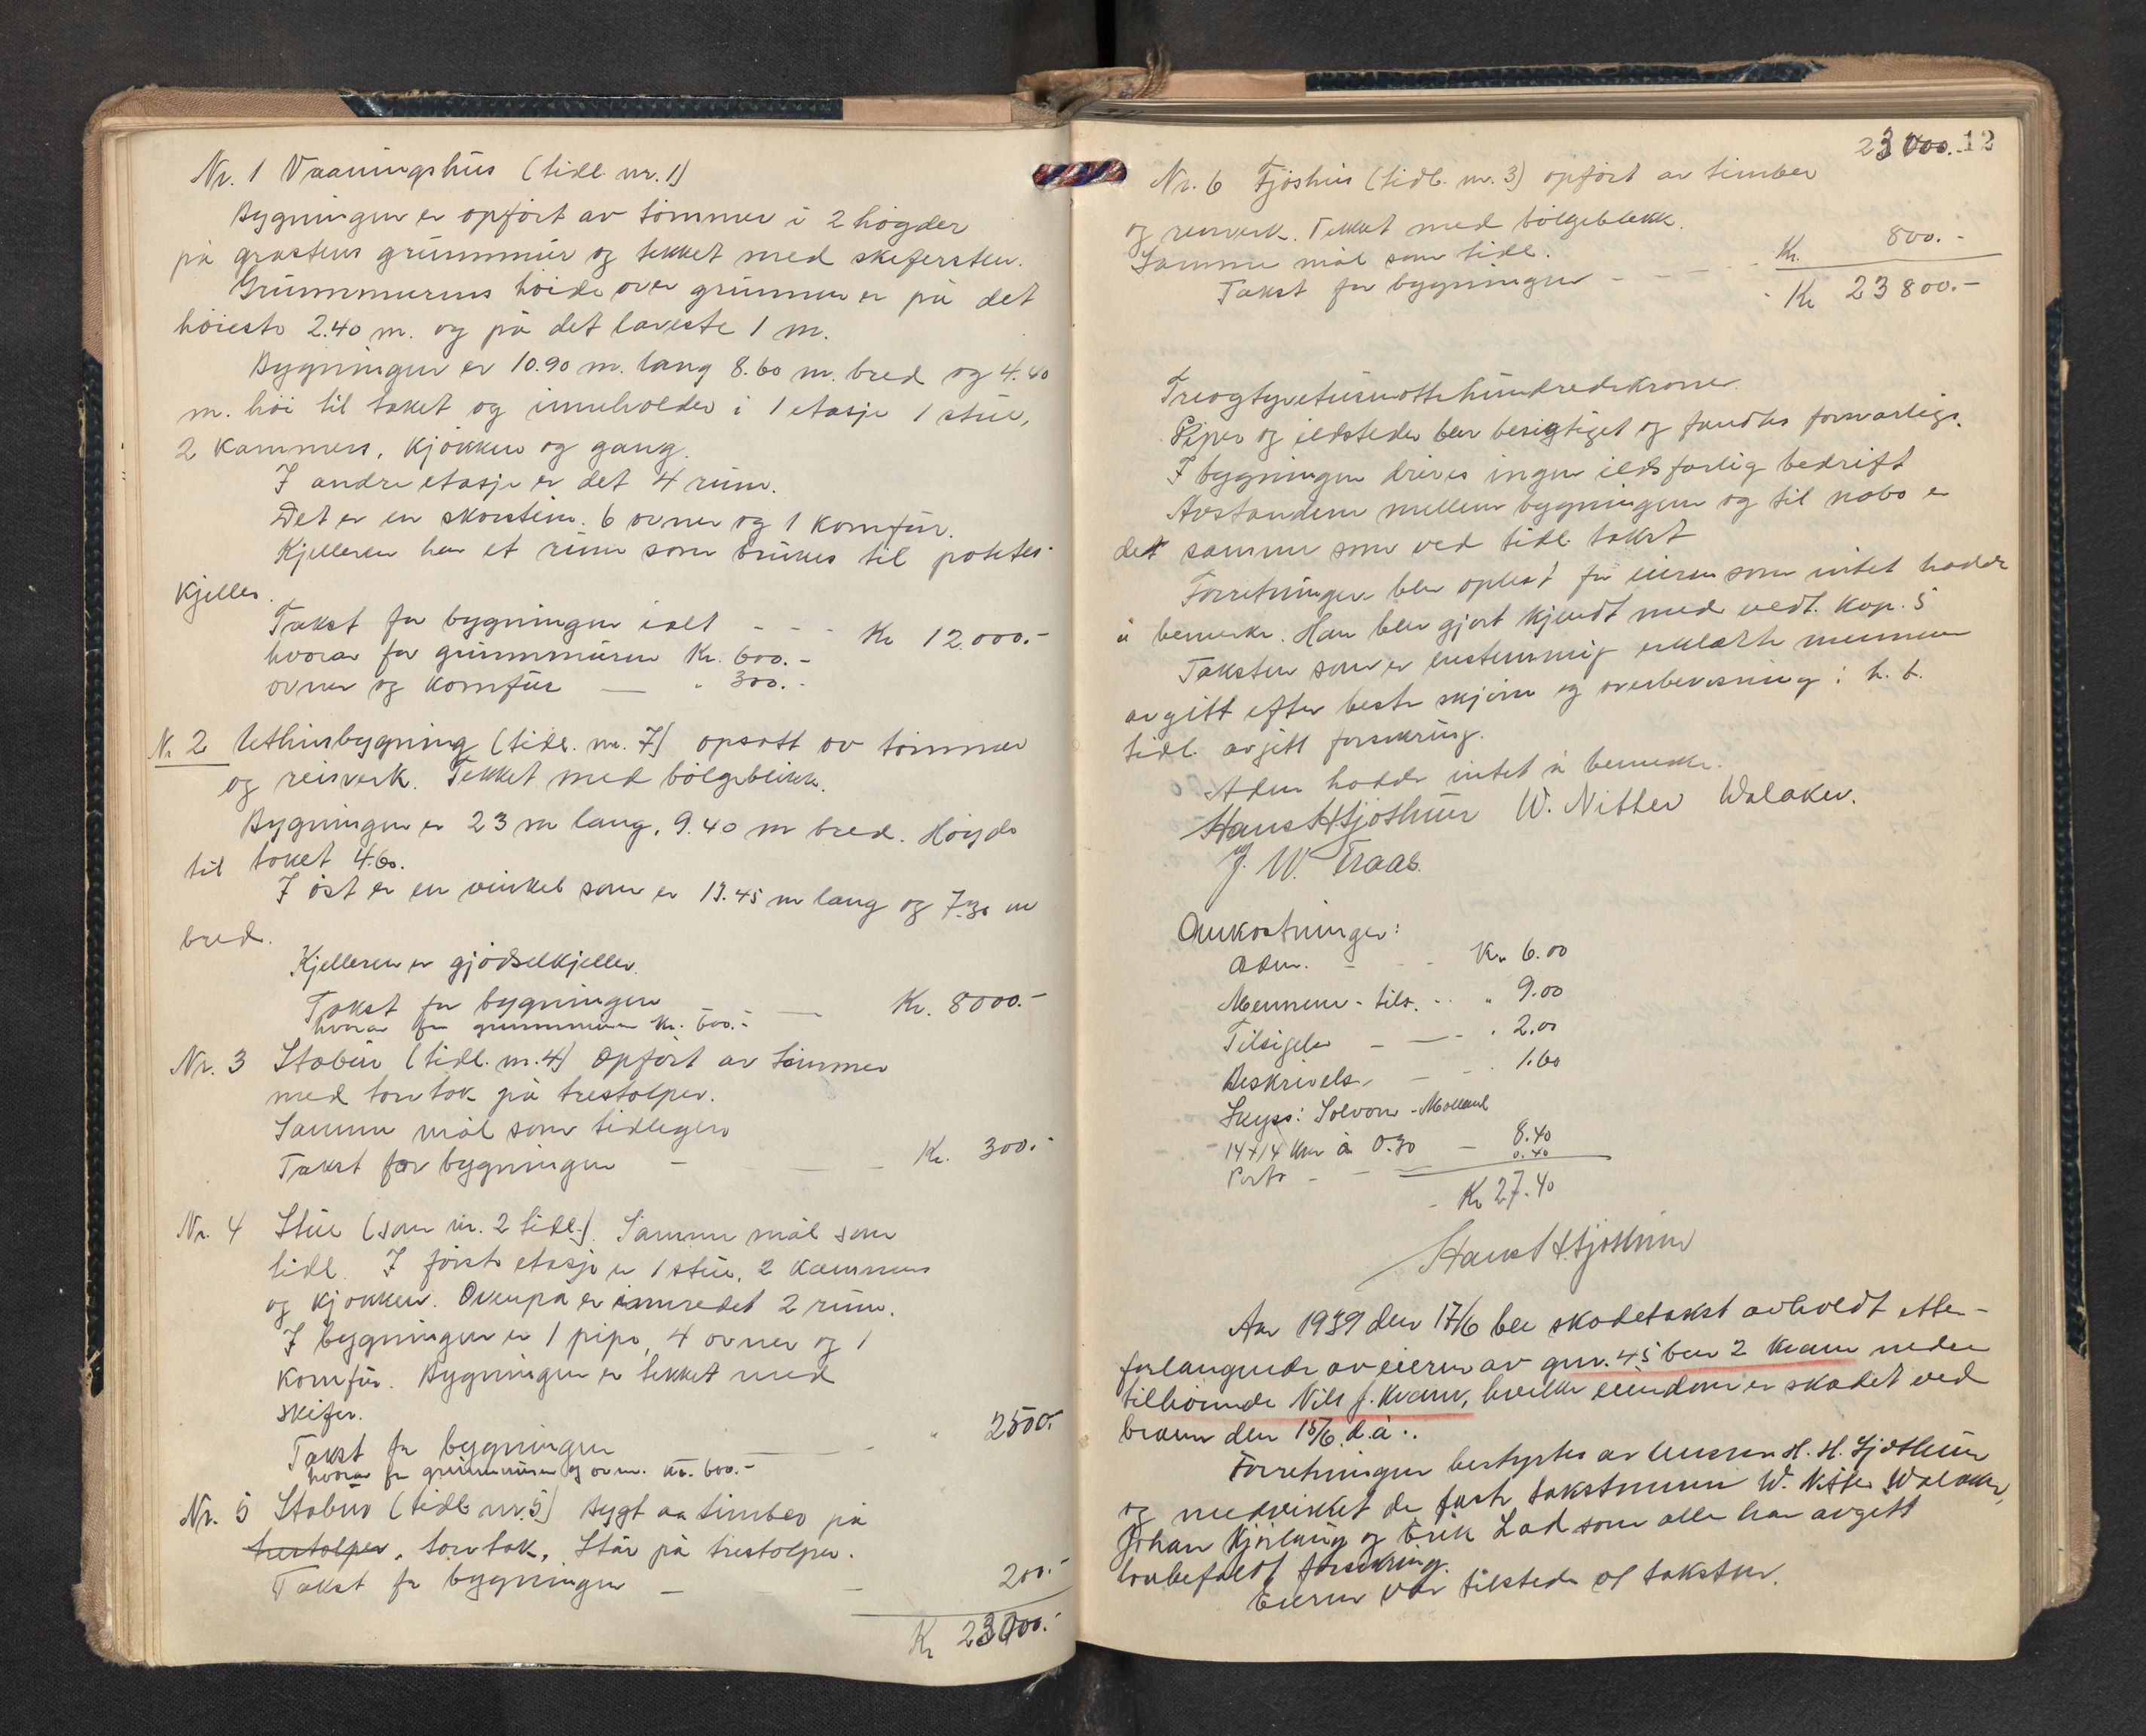 Nr. 1 Vaaningshus (tidl. nr. 1)
Bygningen er opført av tømmer i 2 høgder
på grastens grunnmur og tekket med skifersten.
Grunnmurens høide over grunnen er på det
høieste 2.40 m. og på det laveste 1 m.
Bygningen er 10.90 m. lang 8.60 m. bred og 4.40
m. høi til taket og inneholder i 1 etasje 1 stue,
2 kammers, kjøkken og gang.
I andre etasje er det 4 rum.
Det er en skorstein. 6 ovner og 1 komfur.
Kjelleren har et rum som brukes til potetes-
kjeller.
Takst for bygningen ialt - - - Kr 12.000.-
hvorav for grunnmuren Kr. 600.-
ovner og komfur — " 300.-
Nr. 2 Uthusbygning (tidl. nr. 7) opsatt av tømmer
og reisverk. Tekket med bølgeblikk.
Bygningen er 23 m lang, 9.40 m bred. Høgde
til taket 4.60.
I øst er en vinkel som er 13.45 m lang og 7.30 m
bred.
Kjelleren er gjødselkjeller.
Takst for bygningen - — Kr. 8000.-
hvorav for grunnmuren Kr. 600.-
Nr. 3 Stabur (tidl. nr. 4) Opført av tømmer
med torvtak på trestolper.
Samme mål som tidligere
Takst for bygningen - — Kr. 300.-
Nr. 4 Stue (som nr. 2 tidl.). Samme mål som
tidl. I første etasje er 1 stue, 2 kammers
og kjøkken. Ovenpå er innredet 2 rum.
I bygningen er 1 pipe, 4 ovner og 1
komfur. Bygningen er tekket med
skifer.
Takst for bygningen — " 2500.-
hvorav for grunnmuren og ovn. Kr. 600.-
Nr. 5 Stabur (tidl. nr. 5) Bygt av timber på
trestolper, torvtak, Står på trestolper.
Takst for bygningen — 200.-
Kr 23000.-
23000.- 12
Nr. 6 Fjøshus (tidl. nr. 3) opført av timber
og reisverk. Tekket med bølgeblekk.
Samme mål som tidl.
Takst for bygningen - — Kr. 800.-
Kr 23800.-
Treogtyvetusenottehundredekroner.
Piper og ildsteder blev besigtiget og fandtes forsvarlige.
I bygningen drives ingen ildsfarlig bedrift
Avstanden mellem bygningene og til nabo er
det samme som ved tidl. takst
Forretningen blev oplest for eieren som intet hadde
å bemerke. Han blev gjort kjendt med vedt. kap. 5
Taksten som er enstemmig erklærte mennene
avgitt efter beste skjønn og overbevisning i h. t.
tidl. avgitt forsikring.
Aden hadde intet å bemerke.
Hans H Sjøthun W. Nitter Walaker.
J. W. Traas.
Omkostninger:
Adm. - - - Kr. 6.00
Mennene - tils. - - " 9.00
Tilsigelse - — - " 2.00
Beskrivels. — - " 1.60
Skyss: Solvorn - Molland
14+14 km à 0.30 — 8.40
Porto - - 0.40
Kr 27.40
Hans H. Sjøthun
Aar 1939 den 17/6 ble skadetakst avholdt etter
forlangende av eieren av gnr. 45 bnr 2 Kvam nedre
tilhørende Nils J. Kvam, hvilke eiendom er skadet ved
brann den 15/6 d.å..
Forretningen bestyrtes av lensm H. H. Sjøthun
og medvirket de faste takstmenn W. Nitter Walaker,
Johan Kjørlaug og Erik Lad som alle har avgitt
lovbefalet forsikring.
Eieren var tilstede af taksten.